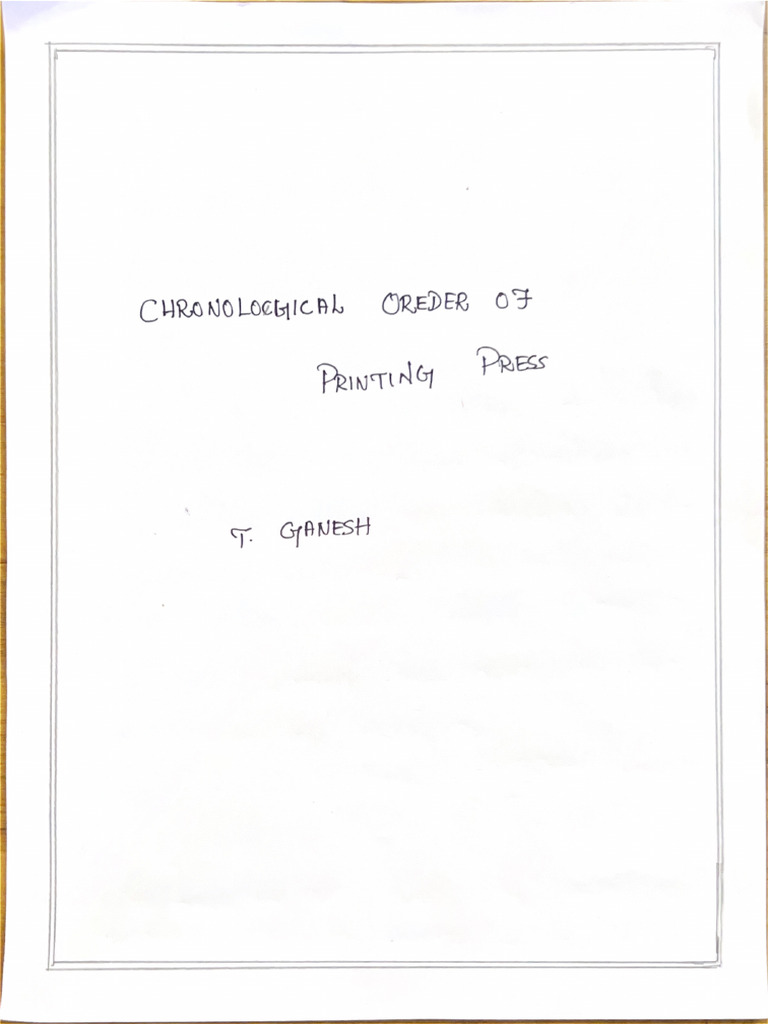 CHRONOLOEGICAL OREDER OF
PRINTING PRESS
T. GANESH